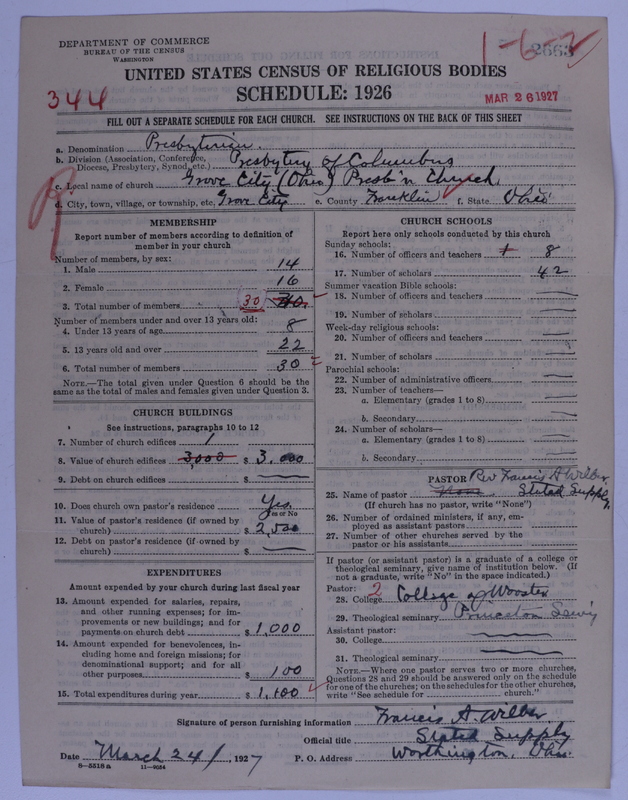 DEPARTMENT OF COMMERCE
BUREAU OF THE CENSUS
WASHINGTON
1-6-2
2663
UNITED STATES CENSUS OF RELIGIOUS BODIES
SCHEDULE: 1926
344
MAR 26 1927
FILL OUT A SEPARATE SCHEDULE FOR EACH CHURCH. SEE INSTRUCTIONS ON THE BACK OF THIS SHEET
a. Denomination Presbyterian.
b. Division (Association, Conference, Diocese, Presbytery, Synod, etc.) Presbytery of Columbus
c. Local name of church Grove City (Ohio) Presb'n Church
d. City, town, village, or township, etc. Grove City e. County Franklin f. State Ohio
MEMBERSHIP
Report number of members according to definition of
member in your church
Number of members, by sex:
1. Male 14
2. Female 16
3. Total number of members 30
Number of members under and over 13 years old:
4. Under 13 years of age 8
5. 13 years old and over 22
6. Total number of members 30
NOTE.—The total given under Question 6 should be
same as the total of males and females given under Question 3.
CHURCH BUILDINGS
See instructions, paragraphs 10 to 12
7. Number of church edifices 1
8. Value of church edifices 3,000 $ 3,000
9. Debt on church edifices $
10. Does church own pastor's residence Yes
Yes or No
11. Value of pastor's residence (if owned by
church) $ 2,500
12. Debt on pastor's residence (if owned by
church) $
EXPENDITURES
Amount expended by your church during last fiscal year
13. Amount expended for salaries, repairs,
and other running expenses; for im-
provements or new buildings; and for
payments on church debt $ 1,000
14. Amount expended for benevolences, in-
cluding home and foreign missions; for
denominational support; and for all
other purposes $ 100
15. Total expenditures during year $ 1,100
CHURCH SCHOOLS
Report here only schools conducted by this church
Sunday schools:
16. Number of officers and teachers 1 8
17. Number of scholars 42
Summer vacation Bible schools:
18. Number of officers and teachers
19. Number of scholars
Week-day religious schools:
20. Number of officers and teachers
21. Number of scholars
Parochial schools:
22. Number of administrative officers
23. Number of teachers—
a. Elementary (grades 1 to 8)
b. Secondary
24. Number of scholars—
a. Elementary (grades 1 to 8)
b. Secondary
PASTOR Rev Francis A Wilber
25. Name of pastor None Stated Supply,
(If church has no pastor, write "None")
26. Number of ordained ministers, if any, em-
ployed as assistant pastors
27. Number of other churches served by the
pastor or his assistants
If pastor (or assistant pastor) is a graduate of a college or
theological seminary, give name of institution below. (If
not a graduate, write "No" in the space indicated.)
Pastor: 2
28. College College of Wooster
29. Theological seminary Princeton
Assistant pastor:
30. College
31. Theological seminary
NOTE.—Where one pastor serves two or more churches,
Questions 28 and 29 should be answered only on the schedule
for one of the churches; on the schedules for the other churches,
write "See schedule for church."
Signature of person furnishing information Francis A. Wilber
Official title Stated Supply
Date March 24, 1927 P. O. Address Worthington, Ohio
8-5518a 11-9084